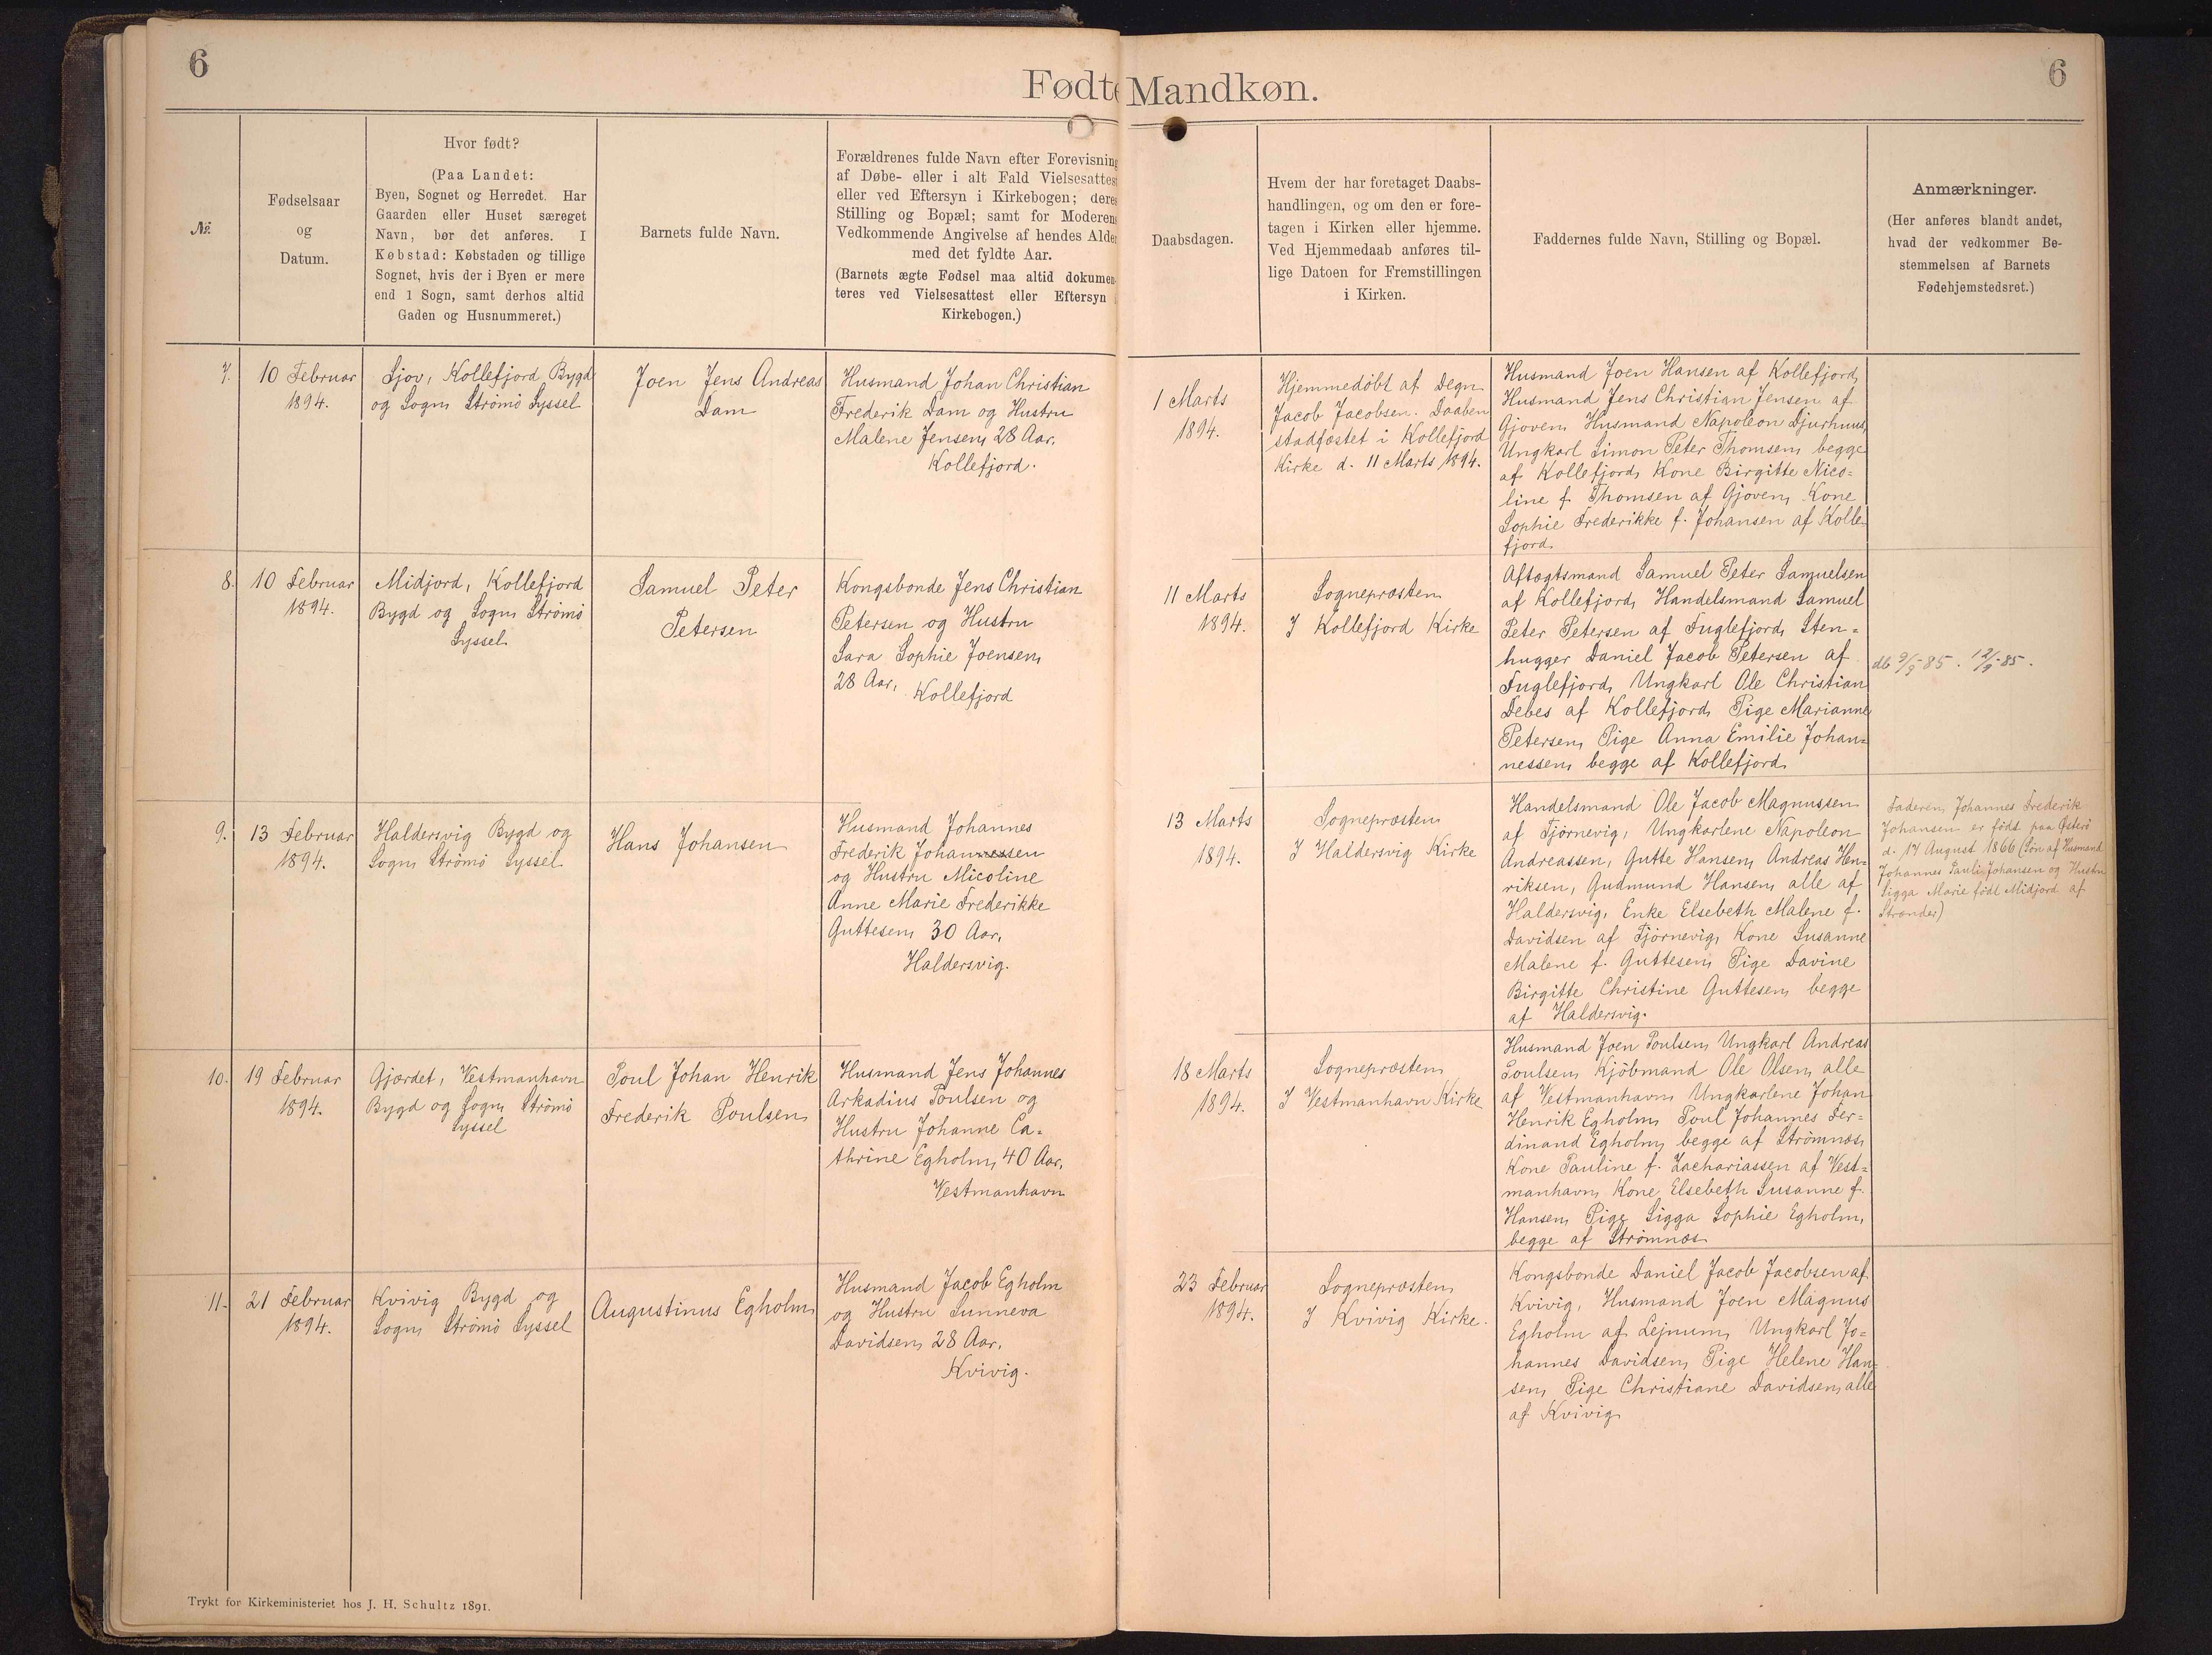 6
Fødte
Mandkøn.
6
№.
Fødselsaar
og
Datum.
Hvor født?
(Paa Landet:
Byen, Sognet og Herredet. Har
Gaarden eller Huset særeget
Navn, bør det anføres. I
Købstad: Købstaden og tillige
Sognet, hvis der i Byen er mere
end 1 Sogn, samt derhos altid
Gaden og Husnummeret.)
Barnets fulde Navn.
Forældrenes fulde Navn efter Forevisning
af Døbe- eller i alt Fald Vielsesattest
eller ved Eftersyn i Kirkebogen; deres
Stilling og Bopæl; samt for Moderens
Vedkommende Angivelse af hendes Alder
med det fyldte Aar.
(Barnets ægte Fødsel maa altid dokumen-
teres ved Vielsesattest eller Eftersyn i
Kirkebogen.)
Daabsdagen.
Hvem der har foretaget Daabs-
handlingen, og om den er fore-
tagen i Kirken eller hjemme.
Ved Hjemmedaab anføres til-
lige Datoen for Fremstillingen
i Kirken.
Faddernes fulde Navn, Stilling og Bopæl.
Anmærkninger.
(Her anføres blandt andet,
hvad der vedkommer Be-
stemmelsen af Barnets
Fødehjemstedsret.)
7.
10 Februar
1894.
Sjov, Kollefjord Bygd
og Sogn Strömö Syssel
Joen Jens Andreas
Dam
Husmand Johan Christian
Frederik Dam og Hustru
Malene Jensen, 28 Aar.
Kollefjord.
1 Marts
1894.
Hjemmedöbt af Degn
Jacob Jacobsen. Daaben
stadfæstet i Kollefjord
Kirke d. 11 Marts 1894.
Husmand Joen Hansen af Kollefjord,
Husmand Jens Christian Jensen af
Gjoven, Husmand Napoleon Djurhuus,
Ungkarl Simon Peter Thomsen, begge
af Kollefjord, Kone Birgitte Nico=
line f. Thomsen af Gjoven, Kone
Sophie Frederikke f. Johansen af Kolle
fjord.
8.
10 Februar
1894.
Midjord, Kollefjord
Bygd og Sogn Strömö
Syssel
Samuel Peter
Petersen
Kongsbonde Jens Christian
Petersen og Hustru
Sara Sophie Joensen,
28 Aar, Kollefjord
11 Marts
1894.
Sognepræsten
I Kollefjord Kirke
Aftægtsmand Samuel Peter Samuelsen
af Kollefjord, Handelsmand Samuel
Peter Petersen af Fuglefjord, Sten=
hugger Daniel Jacob Petersen af
Fuglefjord, Ungkarl Ole Christian
Debes af Kollefjord, Pige Marianne
Petersen, Pige Anna Emilie Johan=
nessen, begge af Kollefjord.
db 9/9-85. 12/9-85.
9.
13 Februar
1894.
Haldersvig Bygd og
Sogn Strömö Syssel
Hans Johansen
Husmand Johannes
Frederik Johannessen
og Hustru Nicoline
Anne Marie Frederikke
Guttesen, 30 Aar,
Haldersvig.
13 Marts
1894.
Sognepræsten
I Haldersvig Kirke
Handelsmand Ole Jacob Magnussen
af Tjörnevig, Ungkarlene Napoleon
Andreassen, Gutte Hansen, Andreas Hen=
riksen, Gudmund Hansen, alle af
Haldersvig, Enke Elsebeth Malene f.
Davidsen af Tjörnevig, Kone Susanne
Malene f. Guttesen, Pige Davine
Birgitte Christine Guttesen, begge
af Haldersvig.
Faderen, Johannes Frederik
Johansen er født paa Østerö
d. 17 August 1866 (Søn af Husmand
Johannes Pauli Johansen og Hustru
Sigga Marie født Midjord af
Strænder)
10.
19 Februar
1894.
Gjærdet, Vestmanhavn
Bygd og Sogn Strömö
Syssel
Poul Johan Henrik
Frederik Poulsen
Husmand Jens Johannes
Arkadius Poulsen og
Hustru Johanne Ca=
thrine Egholm, 40 Aar,
Vestmanhavn
18 Marts
1894.
Sognepræsten
I Vestmanhavn Kirke
Husmand Joen Poulsen, Ungkarl Andreas
Poulsen, Kjöbmand Ole Olsen, alle
af Vestmanhavn, Ungkarlene Johan
Henrik Egholm, Poul Johannes Fer=
dinand Egholm, begge af Strömnæs,
Kone Pauline f. Zachariassen af Vest=
manhavn, Kone Elsebeth Susanne f.
Hansen, Pige Sigga Sophie Egholm,
begge af Strömnæs
11.
21 Februar
1894.
Kvivig Bygd og
Sogn Strömö Syssel
Augustinus Egholm
Husmand Jacob Egholm
og Hustru Sunneva
Davidsen, 28 Aar.
Kvivig.
23 Februar
1894.
Sognepræsten
I Kvivig Kirke.
Kongsbonde Daniel Jacob Jacobsen af
Kvivig, Husmand Joen Magnus
Egholm af Lejnum, Ungkarl Jo=
hannes Davidsen, Pige Helene Han=
sen, Pige Christiane Davidsen, alle
af Kvivig
Trykt for Kirkeministeriet hos J. H. Schultz 1891.